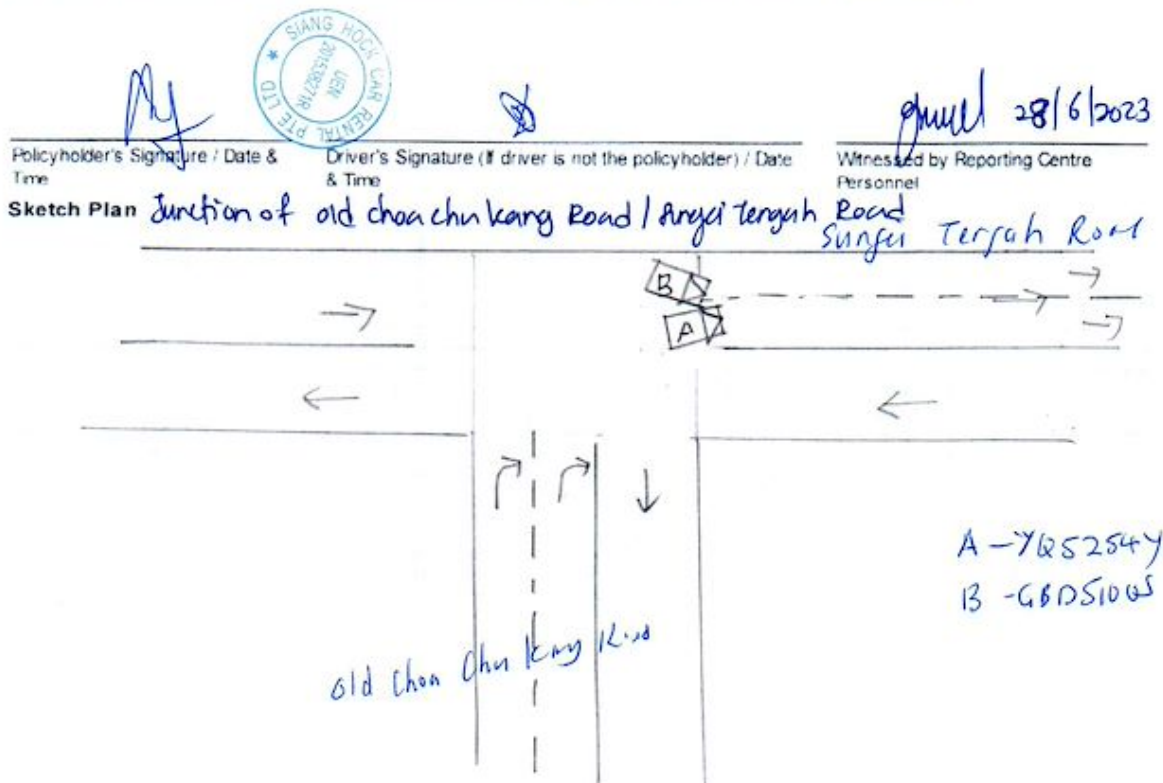 SIANG HOCK CAR RENTAL PTE LTD
UEN
201538271R
28/6/2023
Policyholder's Signature / Date & Time
Driver's Signature (If driver is not the policyholder) / Date & Time
Witnessed by Reporting Centre Personnel
Sketch Plan Junction of old choa chu kang Road / Sungei Tengah Road
Sungei Tengah Road
B
A
A - YQ5254Y
B - GBD510
old Choa Chu Kang Road